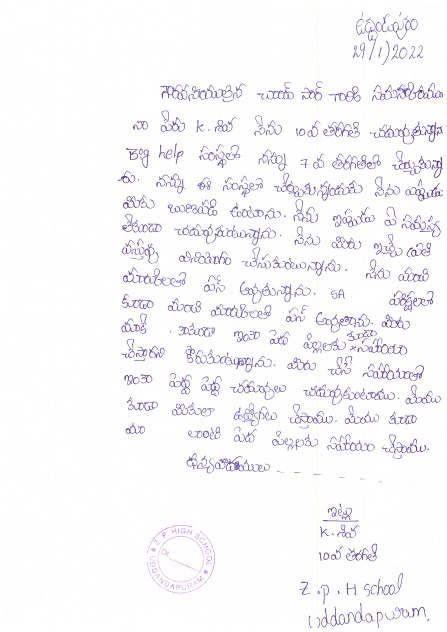 ఉద్దండపురం
29/1/2022
గౌరవనీయులైన చూడమ్ సార్ గారికి నమస్కారములు
నా పేరు K. శివ నేను 10వ తరగతి చదువుతున్నాను
Big help సంస్థలో నన్ను 7 వ తరగతిలో చేర్చుకున్నా
రు. నన్ను ఈ సంస్థలో చేర్చుకున్నందుకు నేను ఎప్పుడు
మీకు ఋణపడి ఉంటాను. నేను ఇప్పుడు ఏ సమస్య
లేకుండా చదువుకుంటున్నాను. నేను మీరు ఇచ్చే ప్రతి
వస్తువు వినియోగం చేసుకుంటున్నాను. నేను మంచి
మార్కులతో పాస్ అవుతున్నాను. SA పరీక్షలలో
కూడా మంచి మార్కులతో పాస్ అవుతాను. మీరు
మాకే కాకుండా ఇంకా పేద పిల్లలకు కూడా సహాయం
చేస్తారని కోరుకుంటున్నాను. మీరు చేసే సహాయంతో
ఇంకా పెద్ద పెద్ద చదువులు చదువుకుంటాము. మేము
కూడా మీలాగా ఉద్యోగాలు చేస్తాము. మేము కూడా
మా లాంటి పేద పిల్లలకు సహాయం చేస్తాము.
ధన్యవాదములు
ఇట్లు
K. శివ
10వ తరగతి
Z. P. H School
Uddandapuram.
Z. P HIGH SCHOOL
UDDANDAPURAM